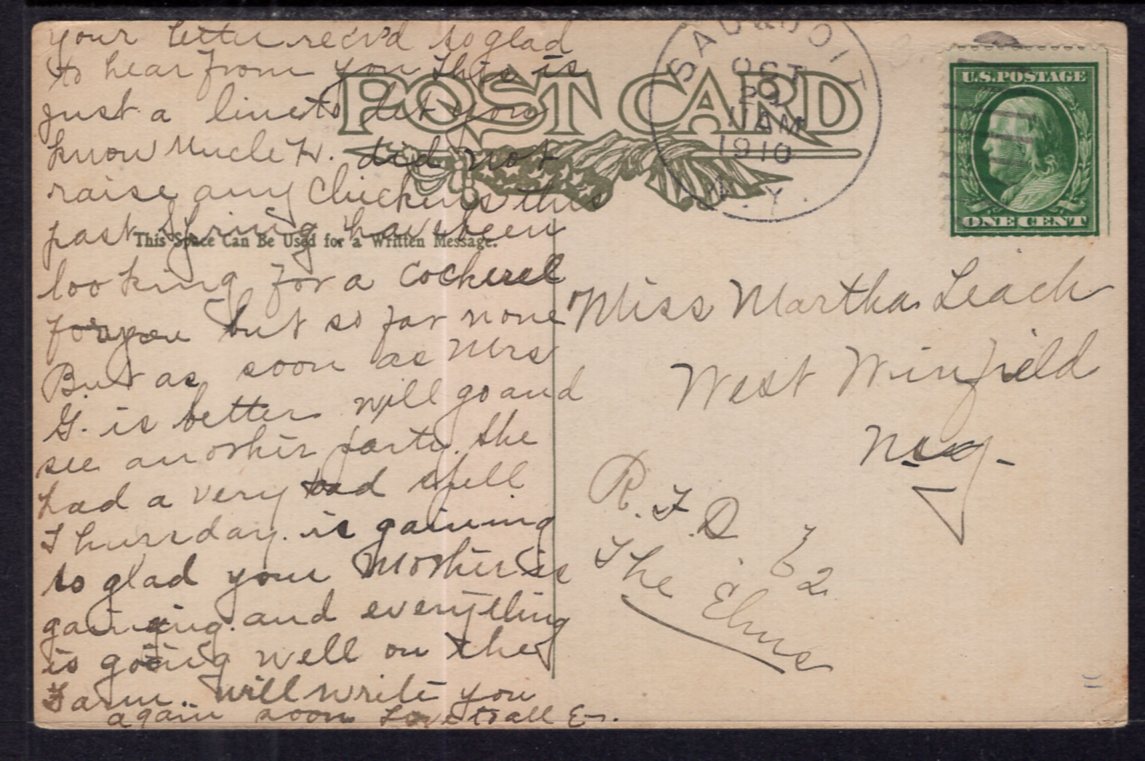 your letter rec'd so glad
to hear from you This is
just a line to let you
know Uncle H. did not
raise any Chickens this
past Spring have been
looking for a Cockerel
for you but so far none
But as soon as Mrs
G. is better will go and
see another party. She
had a very bad spell
Thursday. is gaining
so glad your Mother is
gaining. and everything
is going well on the
Farm. will write you
again soon Love to all E-.
POST CARD
This Space Can Be Used for a Written Message.
SAUQUOIT
OCT
29
11 AM
1910
N.Y.
U.S. POSTAGE
ONE CENT
Miss Martha Leach
West Winfield
N.Y.
R.F.D.
The Elms